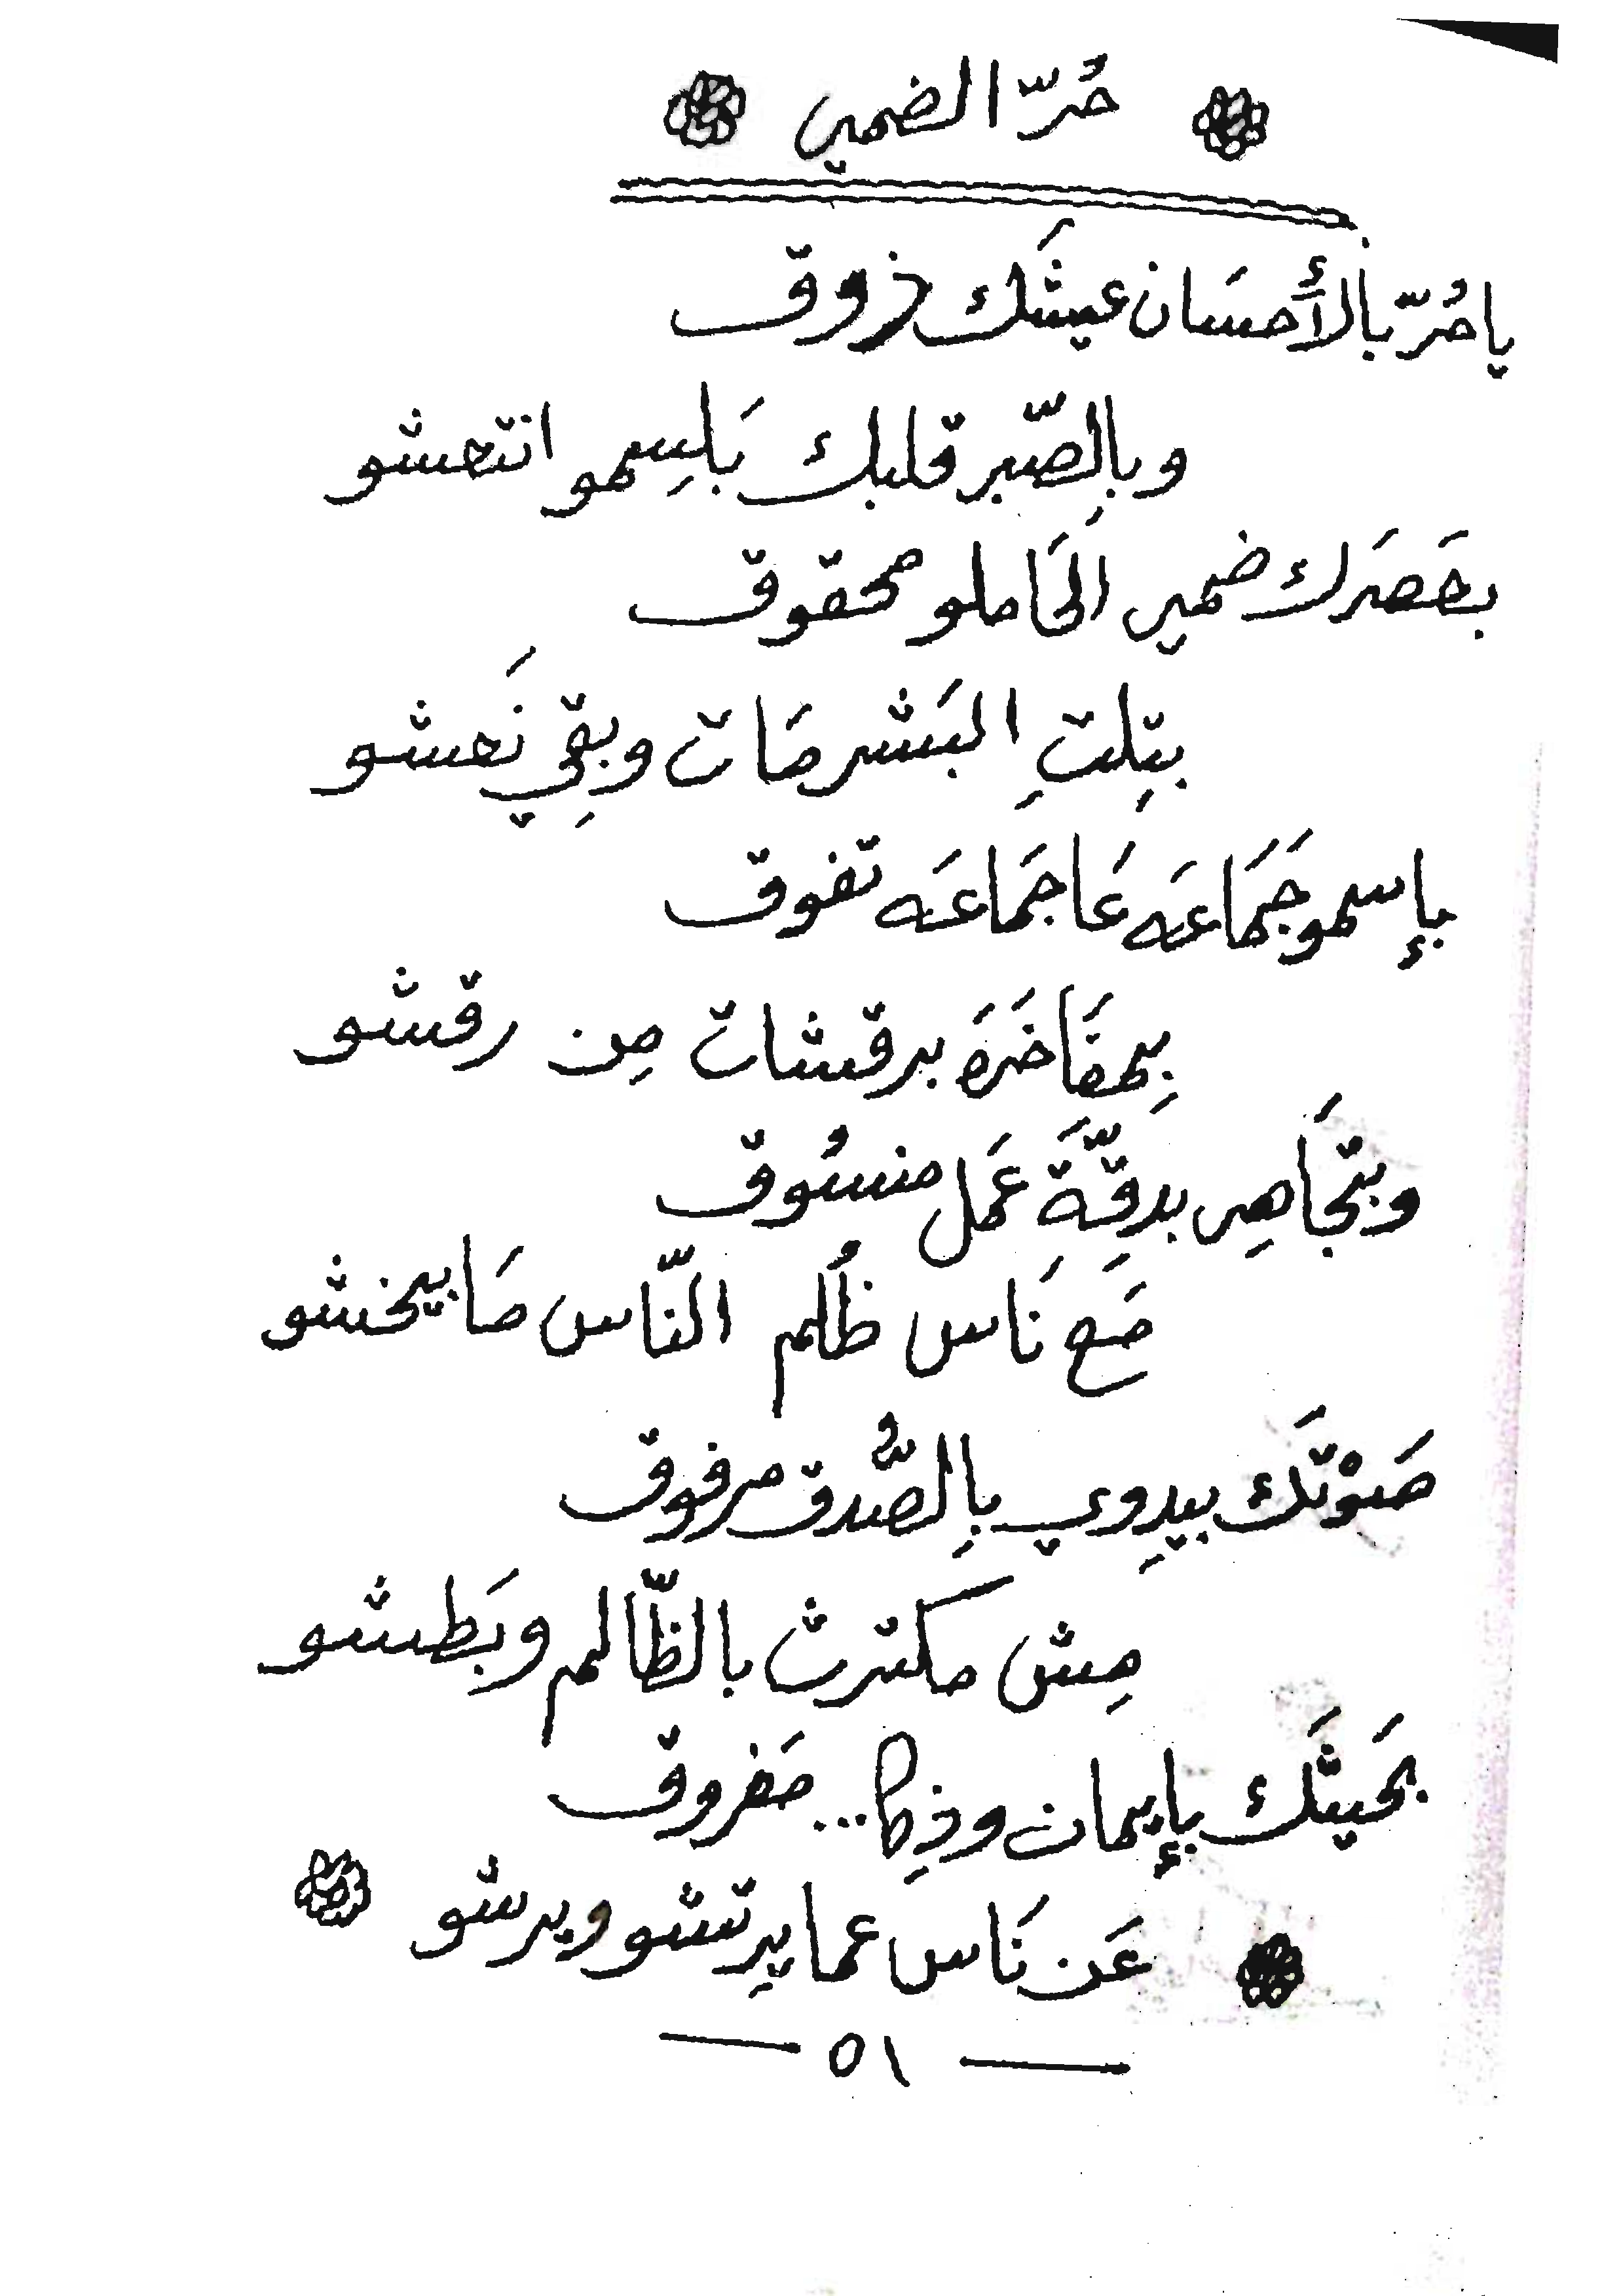 حُرّ الضمير
يا حُرّ بالأحسَان عيشَك ذوق
وبِالصّبر قلبك بَلسِمو انتعشو
بعَصرَك ضمير الحَاملو محقوق
بتِلتِ البَشر مَات وبقِي نَعشو
بإسمو جَمَاعَه عَا جمَاعَه تفوق
بِمفَاخَرَه برقشات مِن رقشو
وبتجَاهِر بدِقِّةَ عَمَل منسُوق
مَع نَاس ظُلم النّاس مَا بيخشو
صَوْتَك بيدِوي بِالصُّدق مرفوق
مِش مكترث بالظّالم وبَطشو
بحَيثَك بإيمان وذِكا... مَفروق
عَن نَاس عما يِرتشو ويرشو
— ٥١ —